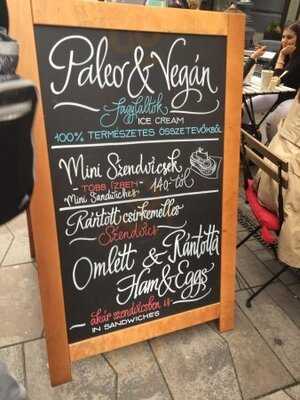 Paleo & Vegán
Fagylaltok
ICE CREAM
100% TERMÉSZETES ÖSSZETEVŐKBŐL
Mini Szendvicsek
- TÖBB ÍZBEN - 140.-tól
- Mini Sandwiches -
Rántott csirkemelles
Szendvics
Omlett & Rántotta
Ham & Eggs
- akár szendvicsben is -
IN SANDWICHES